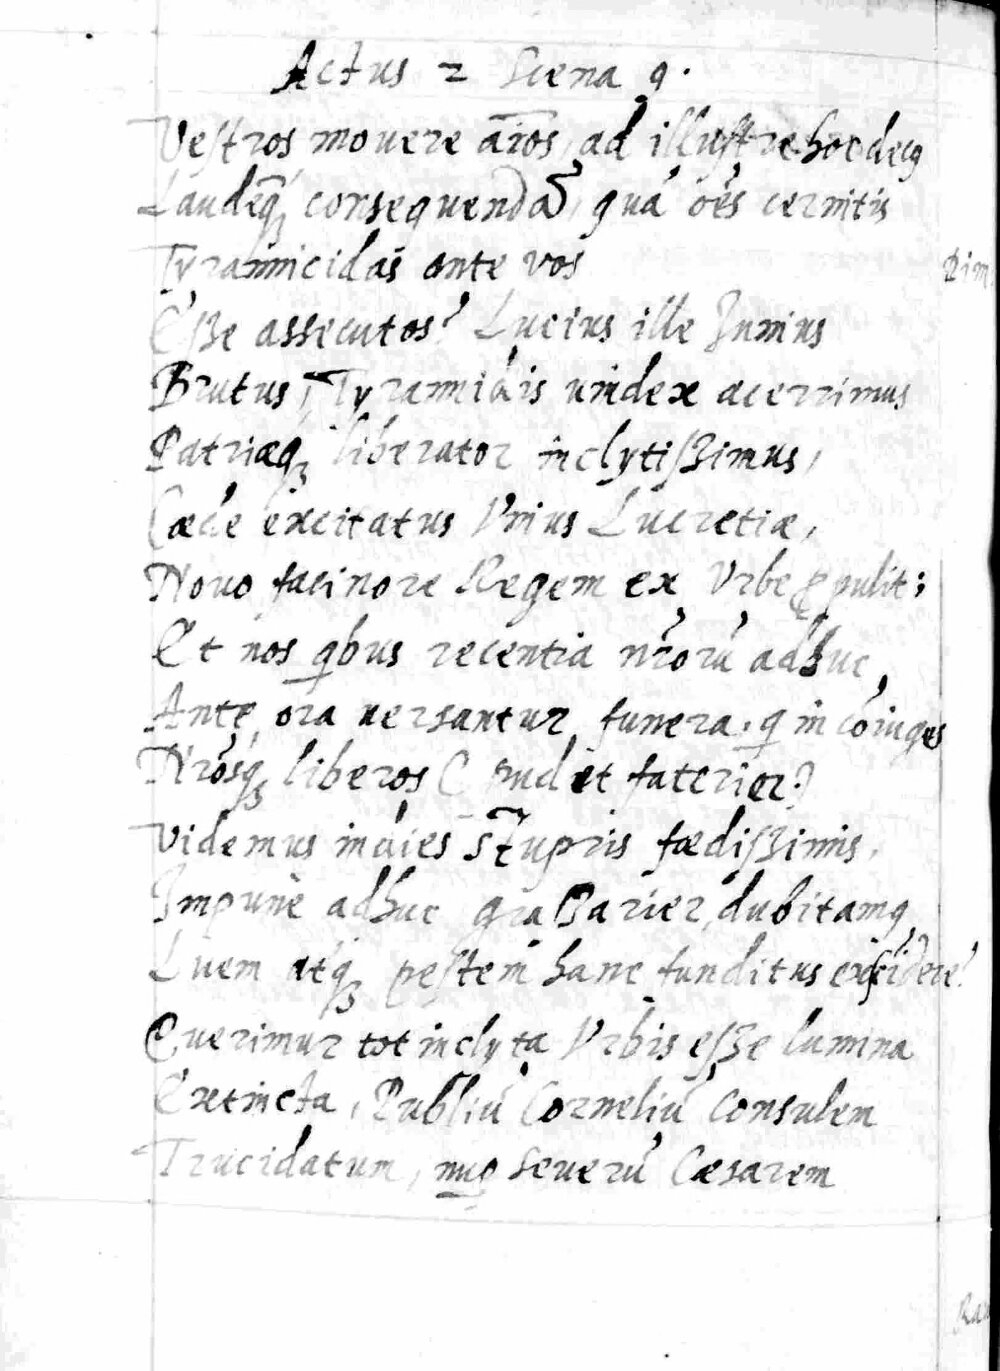 Actus 2 Scena 9.
Vestros mouere aīos, ad illustre hoc decꝰ
Laudēq́ꝫ consequendā, quā oēs cernitis
Tyrannicidas ante vos
Esse assecutos? Lucius ille Iunius
Brutus, Tyrannidis uindex acerrimus
Patriæqꝫ liberator inclytissimus,
Cæde excitatus Vnius Lucretiæ,
Nouo facinore Regem ex Vrbe ꝑpulit;
Et nos qbus recentia nrōrū adhuc
Ante ora uersantur funera, q in cōiuges
Nrōsqꝫ liberos (pudet faterier)
Videmus indies stupris fœdissimis,
Impunè adhuc grassarier, dubitamꝰ
Luem atq́ꝫ pestem hanc funditus exscidere?
Querimur tot inclyta Vrbis esse lumina
Extincta, Publiū Corneliū Consulem
Trucidatum, nuꝑ Seuerū Cæsarem